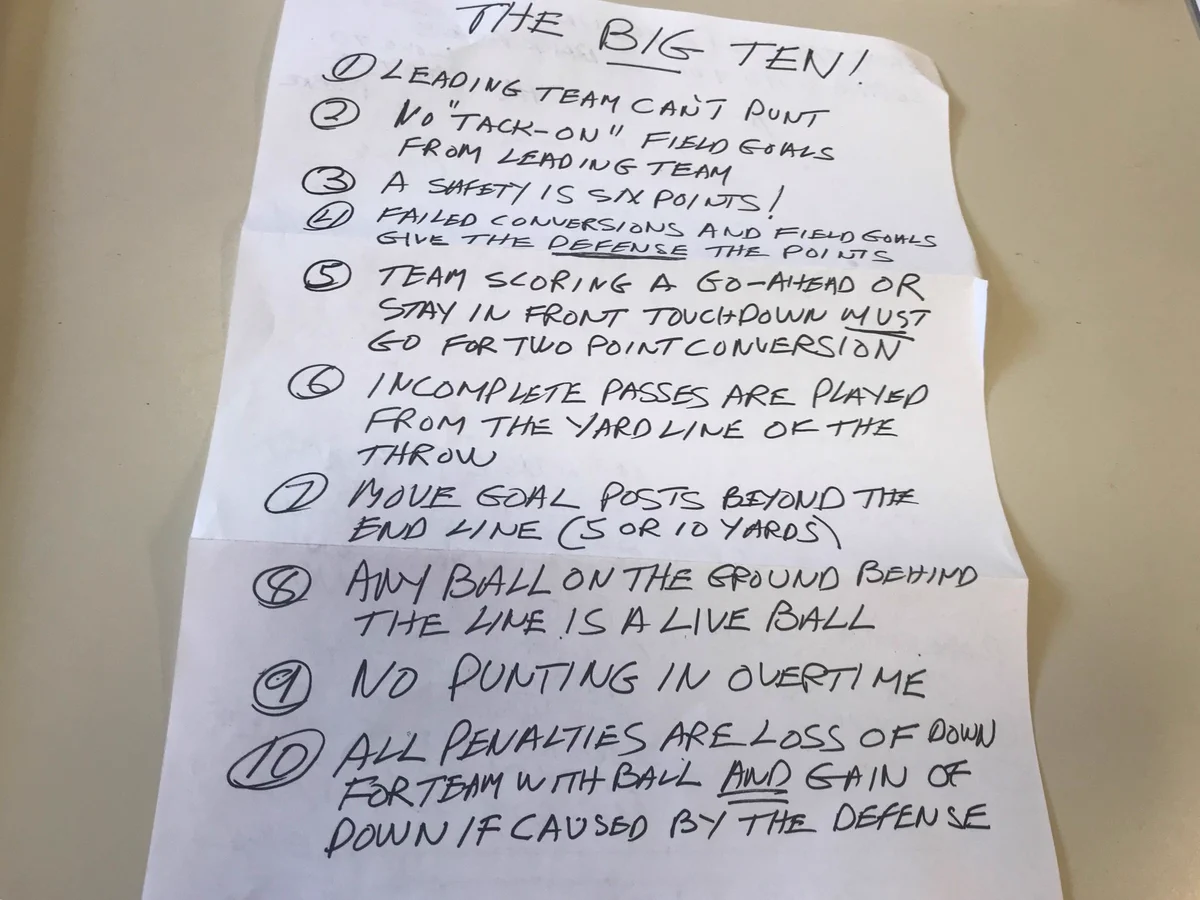 THE BIG TEN!
① LEADING TEAM CAN'T PUNT
② NO "TACK-ON" FIELD GOALS
FROM LEADING TEAM
③ A SAFETY IS SIX POINTS!
④ FAILED CONVERSIONS AND FIELD GOALS
GIVE THE DEFENSE THE POINTS
⑤ TEAM SCORING A GO-AHEAD OR
STAY IN FRONT TOUCHDOWN MUST
GO FOR TWO POINT CONVERSION
⑥ INCOMPLETE PASSES ARE PLAYED
FROM THE YARD LINE OF THE
THROW
⑦ MOVE GOAL POSTS BEYOND THE
END LINE (5 OR 10 YARDS)
⑧ ANY BALL ON THE GROUND BEHIND
THE LINE IS A LIVE BALL
⑨ NO PUNTING IN OVERTIME
⑩ ALL PENALTIES ARE LOSS OF DOWN
FOR TEAM WITH BALL AND GAIN OF
DOWN IF CAUSED BY THE DEFENSE